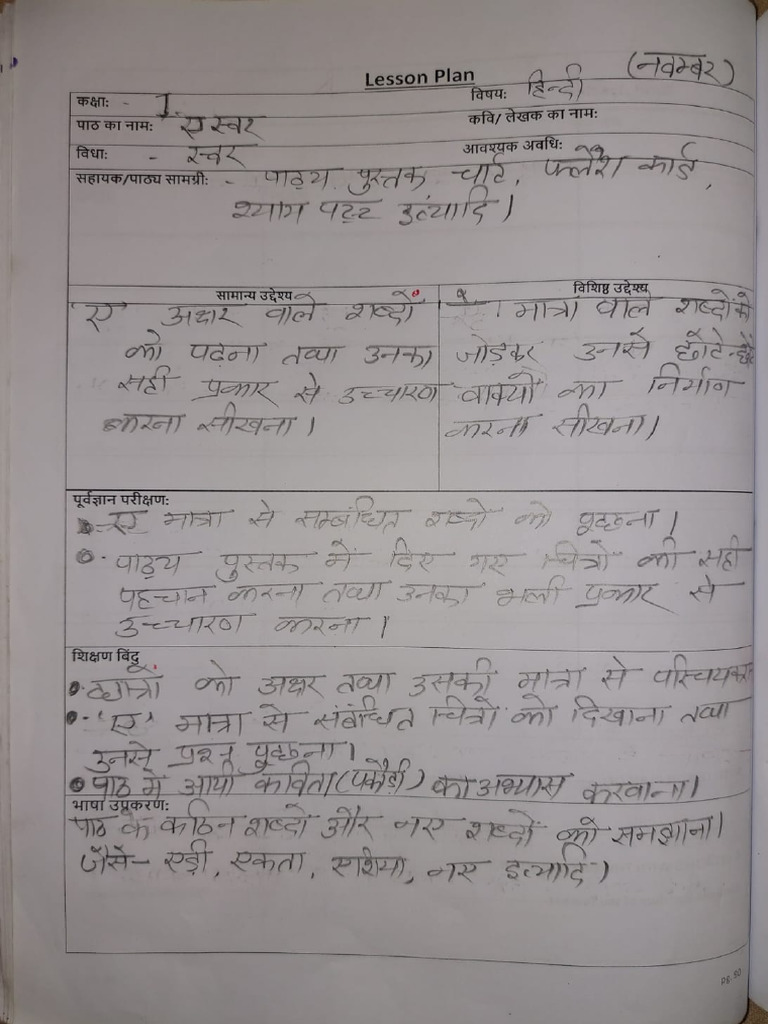 (नवम्बर)
Lesson Plan
कक्षा: - I विषय: हिन्दी
पाठ का नाम: ए स्वर कवि/ लेखक का नाम:
विधा: - स्वर आवश्यक अवधि:
सहायक/पाठ्य सामग्री: - पाठ्य पुस्तक, चार्ट, फ्लैश कार्ड,
श्याम पट्ट इत्यादि।
सामान्य उद्देश्य
'ए' अक्षर वाले शब्दों
को पढ़ना तथा उनका
सही प्रकार से उच्चारण
करना सीखना।
विशिष्ठ उद्देश्य
मात्रा वाले शब्दों को
जोड़कर उनसे छोटे-छोटे
वाक्यों का निर्माण
करना सीखना।
पूर्वज्ञान परीक्षण:
ए मात्रा से सम्बंधित शब्दो को पूछना।
पाठ्य पुस्तक में दिए गए चित्रो की सही
पहचान करना तथा उनका भली प्रकार से
उच्चारण करना।
शिक्षण बिंदु
छात्रों को अक्षर तथा उसकी मात्रा से परिचय
'ए' मात्रा से संबंधित चित्रों को दिखाना तथा
उनसे प्रश्न पूछना।
पाठ में आयी कविता (पकौड़ी) का अभ्यास करवाना।
भाषा उप्रकरण:
पाठ के कठिन शब्दों और नए शब्दों को समझाना।
जैसे- एड़ी, एकता, एशिया, नए इत्यादि।
PG-90